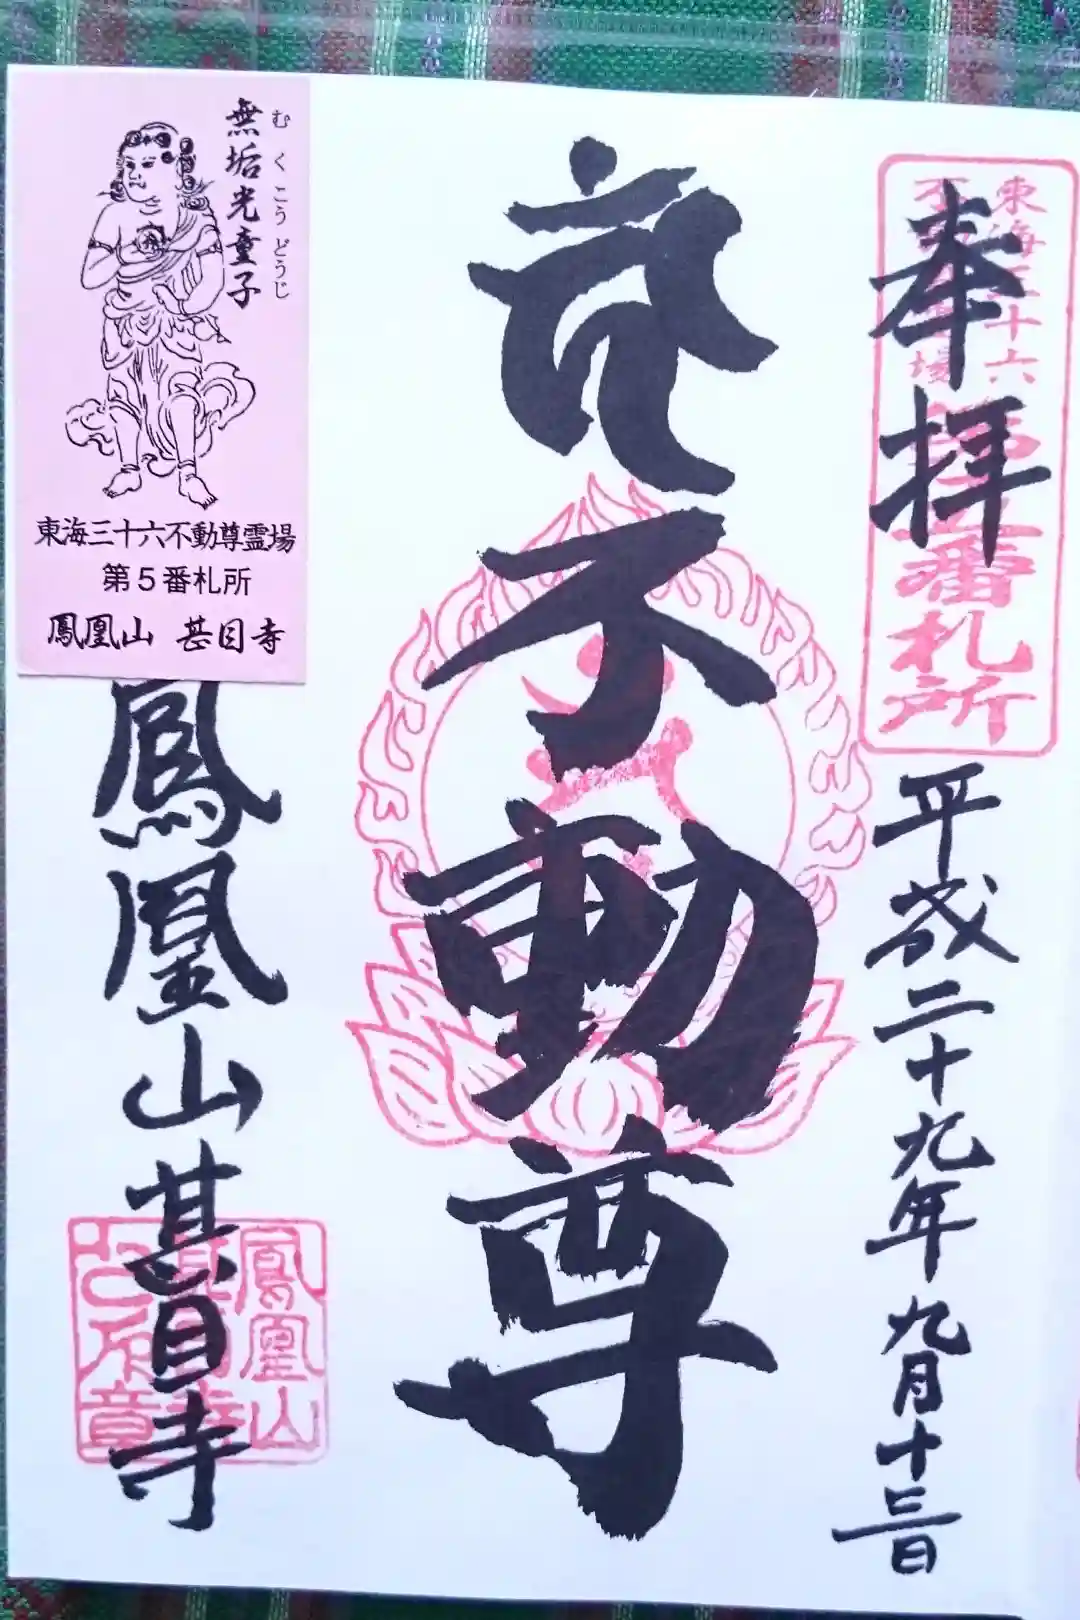 奉拝
東海三十六
不動尊霊場
第五番札所
平成二十九年九月十三日
不動尊
鳳凰山甚目寺
鳳凰山
無垢光童子
むくこうどうじ
東海三十六不動尊霊場
第5番札所
鳳凰山 甚目寺